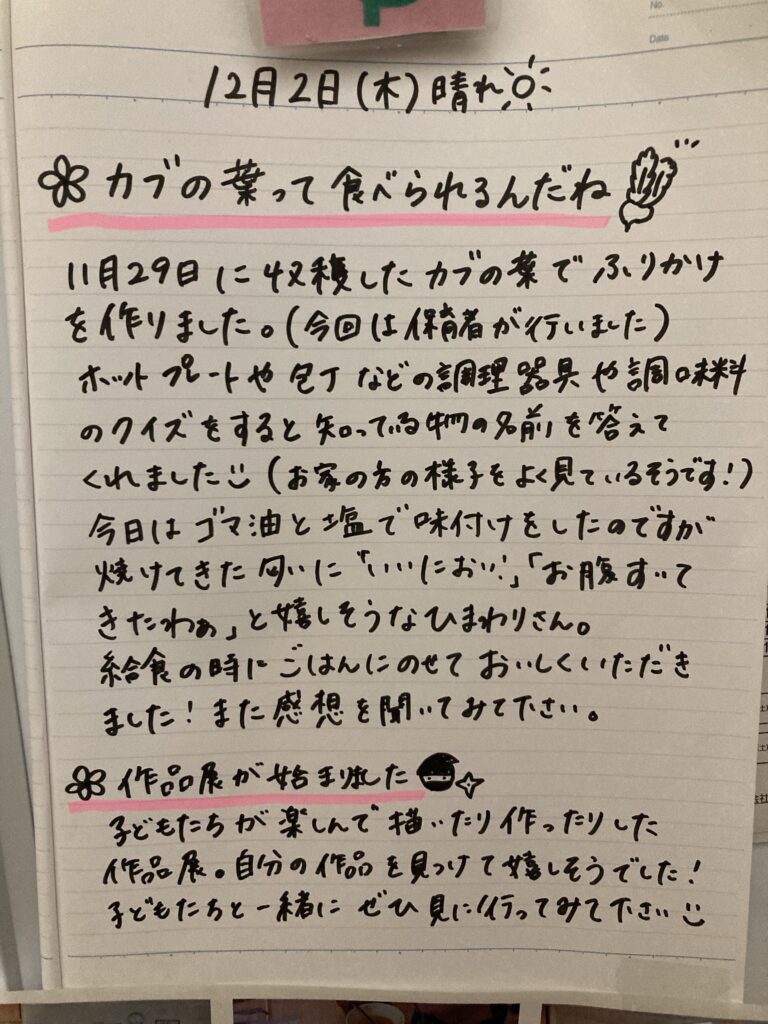 No.
Date
12月2日(木)晴れ
カブの葉って食べられるんだね
11月29日に収穫したカブの葉でふりかけ
を作りました。(今回は保育者が行いました)
ホットプレートや包丁などの調理器具や調味料
のクイズをすると知っている物の名前を答えて
くれました(お家の方の様子をよく見ているそうです!)
今日はゴマ油と塩で味付けをしたのですが
焼けてきた匂いに「いいにおい!」「お腹すいて
きたわぁ」と嬉しそうなひまわりさん。
給食の時にごはんにのせておいしくいただき
ました!また感想を聞いてみて下さい。
作品展が始まりました
子どもたちが楽しんで描いたり作ったりした
作品展。自分の作品を見つけて嬉しそうでした!
子どもたちと一緒にぜひ見に行ってみて下さい